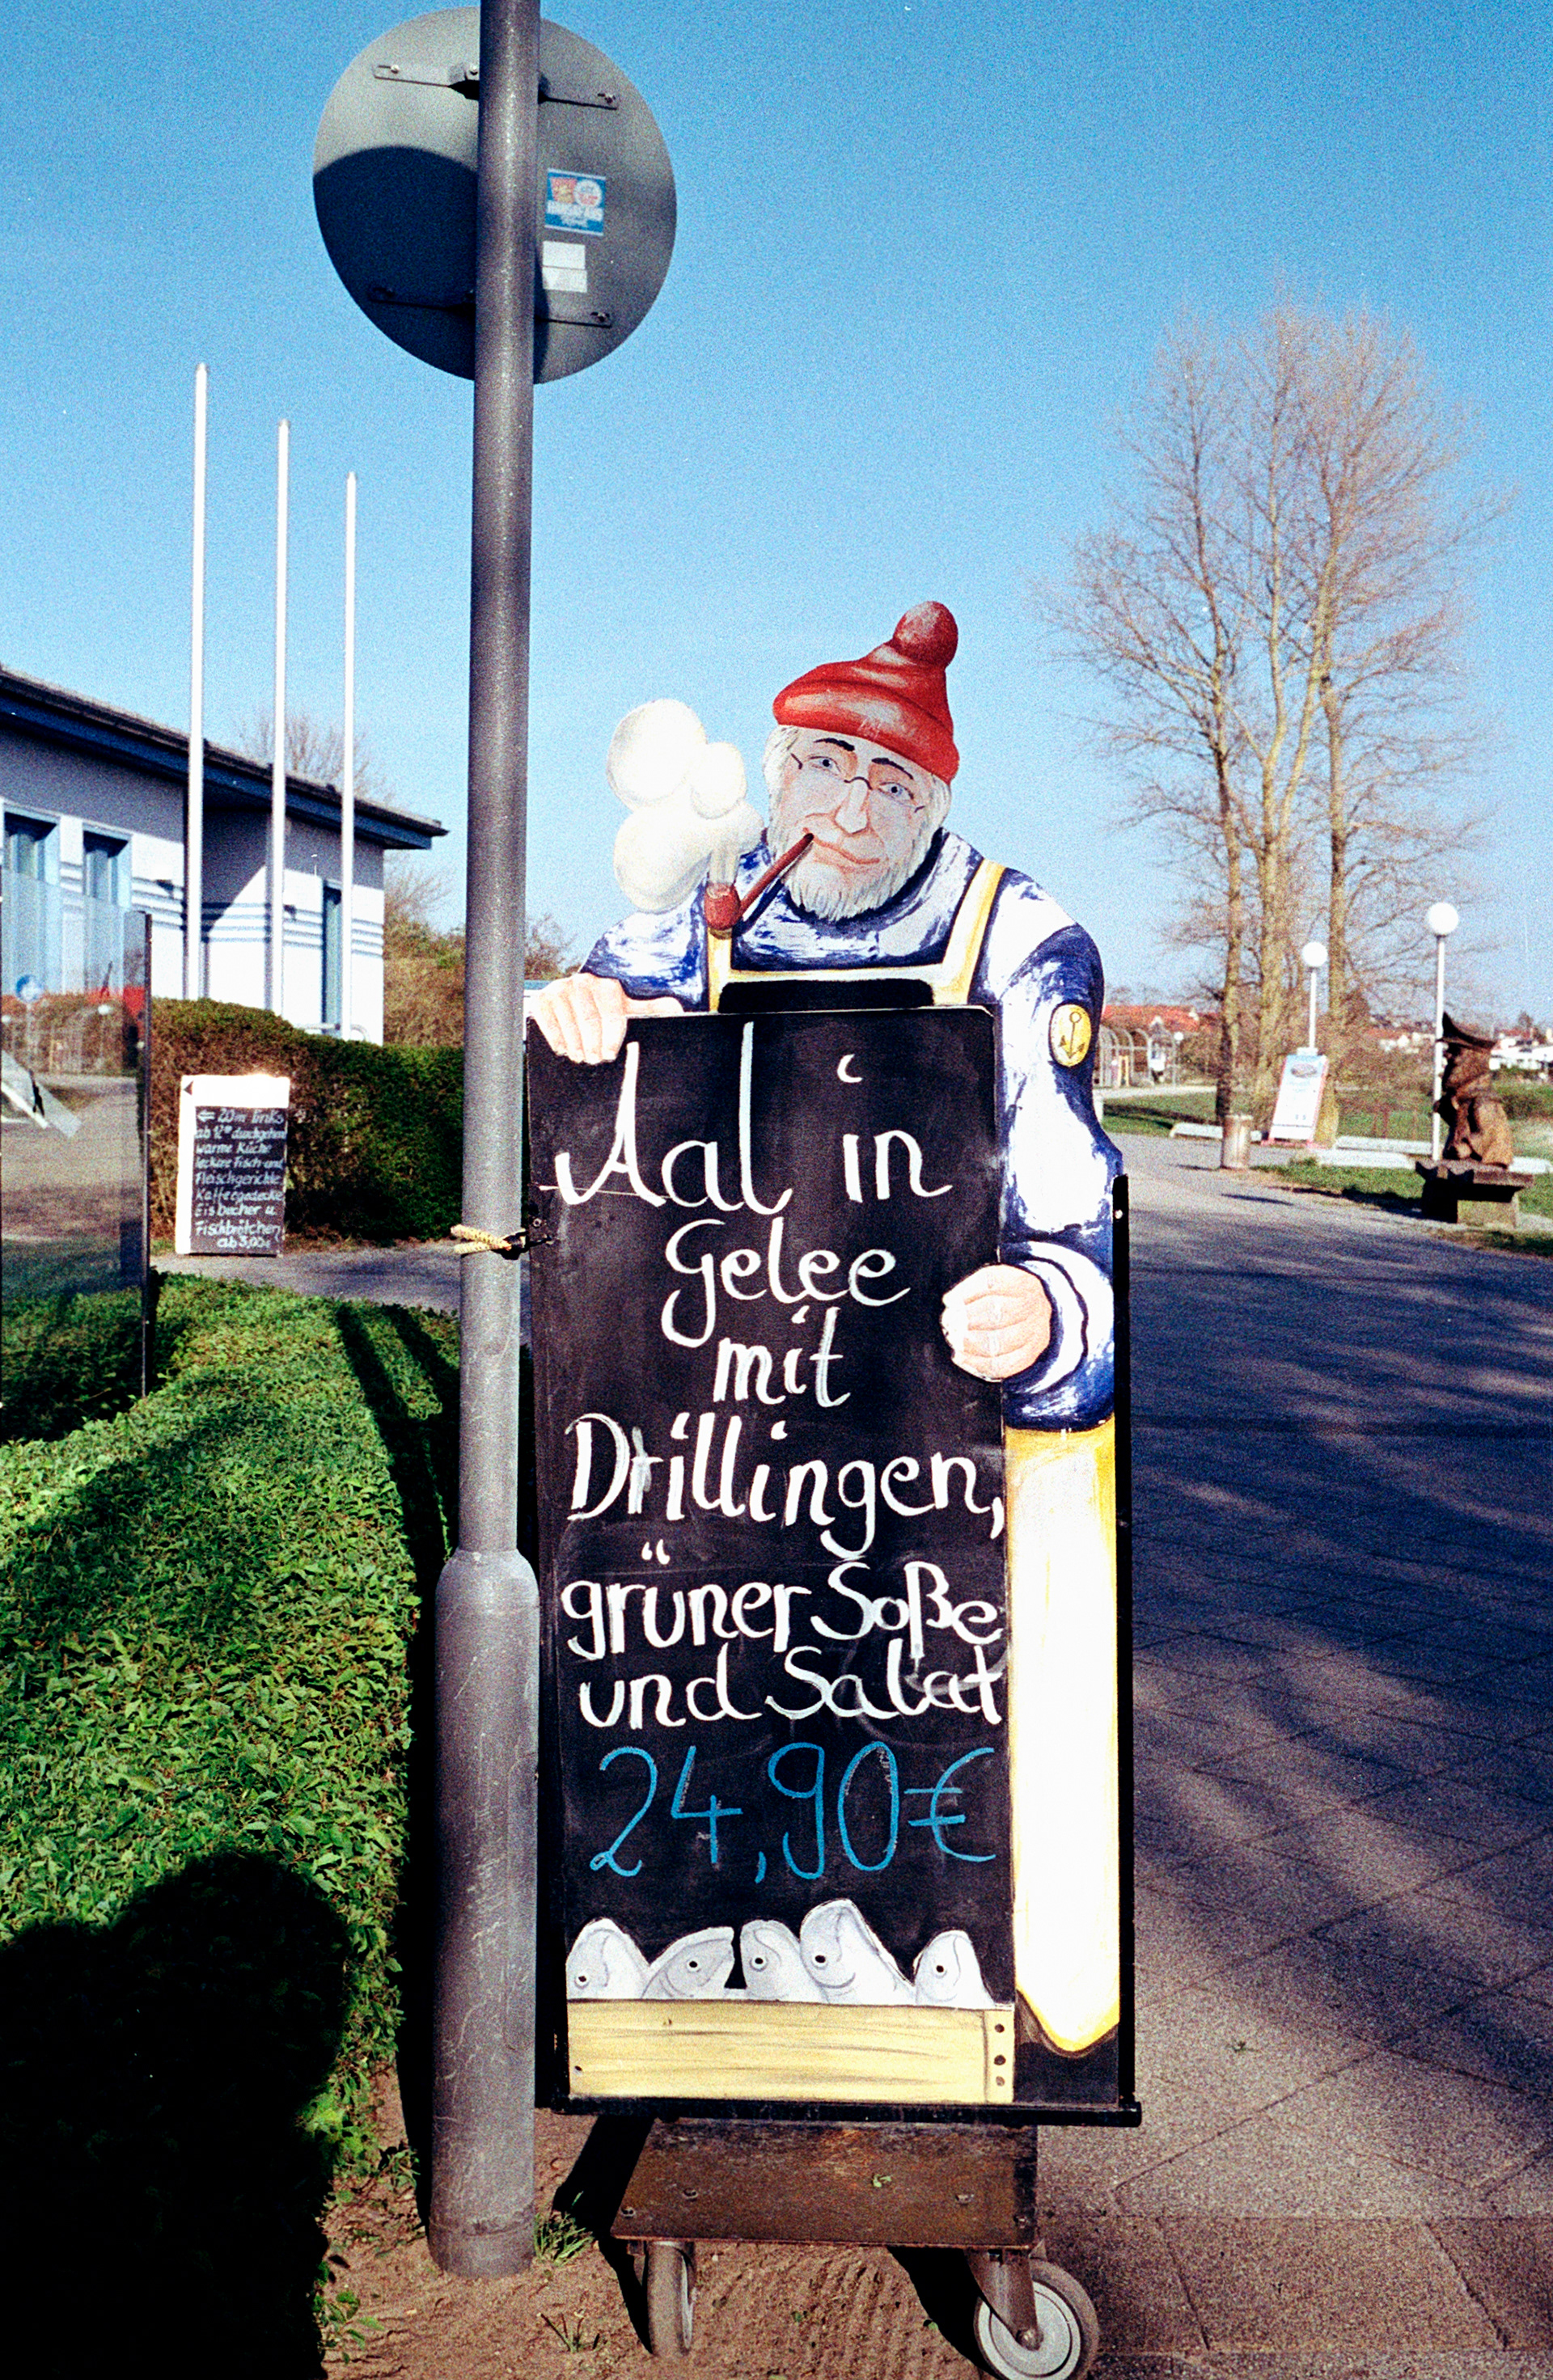 Aal in
Gelee
mit
Drillingen,
grüner Soße
und Salat
24,90€
⇐ 20m links
ab 12°° durchgehend
warme Küche
leckere Fisch-und
Fleischgerichte
Kaffeegedecke
Eisbecher u.
Fischbrötchen
ab 3,00€